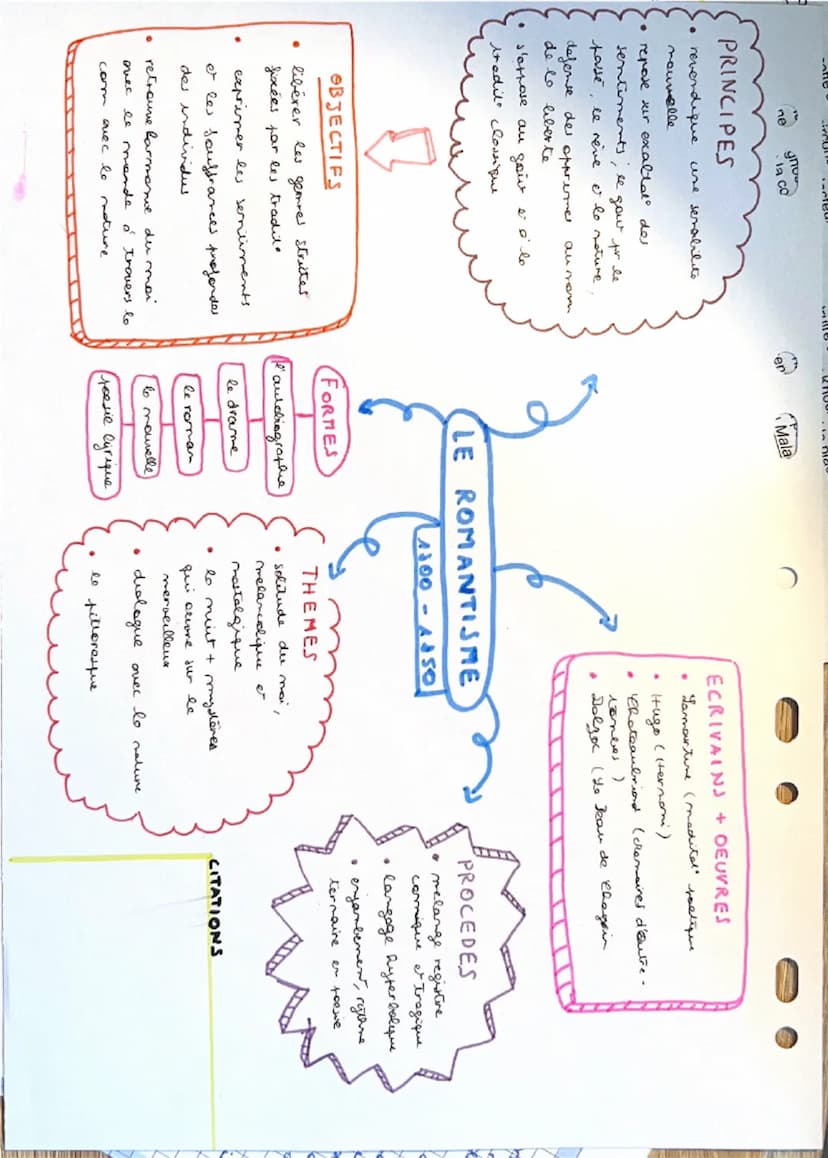 LE ROMANTISME
1800 - 1850
PRINCIPES
• revendique une sensibilité
nouvelle
• repose sur exaltat° des
sentiments, le goût pr le
passé, le rêve et la nature,
défense des opprimés au nom
de la liberté
• s'oppose au goût et à la
tradit° classique
OBJECTIFS
• libérer les genres strictes
fixées par les tradit°
• exprimer les sentiments
et les souffrances profondes
des individus
• retrouve harmonie du moi
avec le monde à travers la
com avec la nature
FORMES
l'autobiographie
le drame
le roman
la nouvelle
poésie lyrique
THEMES
• solitude du moi,
mélancolique et
nostalgique
• la nuit + mystères
qui œuvre sur le
merveilleux
• dialogue avec la nature
• le pittoresque
ECRIVAINS + OEUVRES
• Lamartine (méditat° poétique
• Hugo (Hernani)
• Chateaubriand (Mémoires d'outre-
tombes)
• Balzac (La Peau de Chagrin
PROCEDES
• mélange registre
comique et tragique
• langage hyperbolique
• enjambement, rythme
ternaire en poésie
CITATIONS
Mala